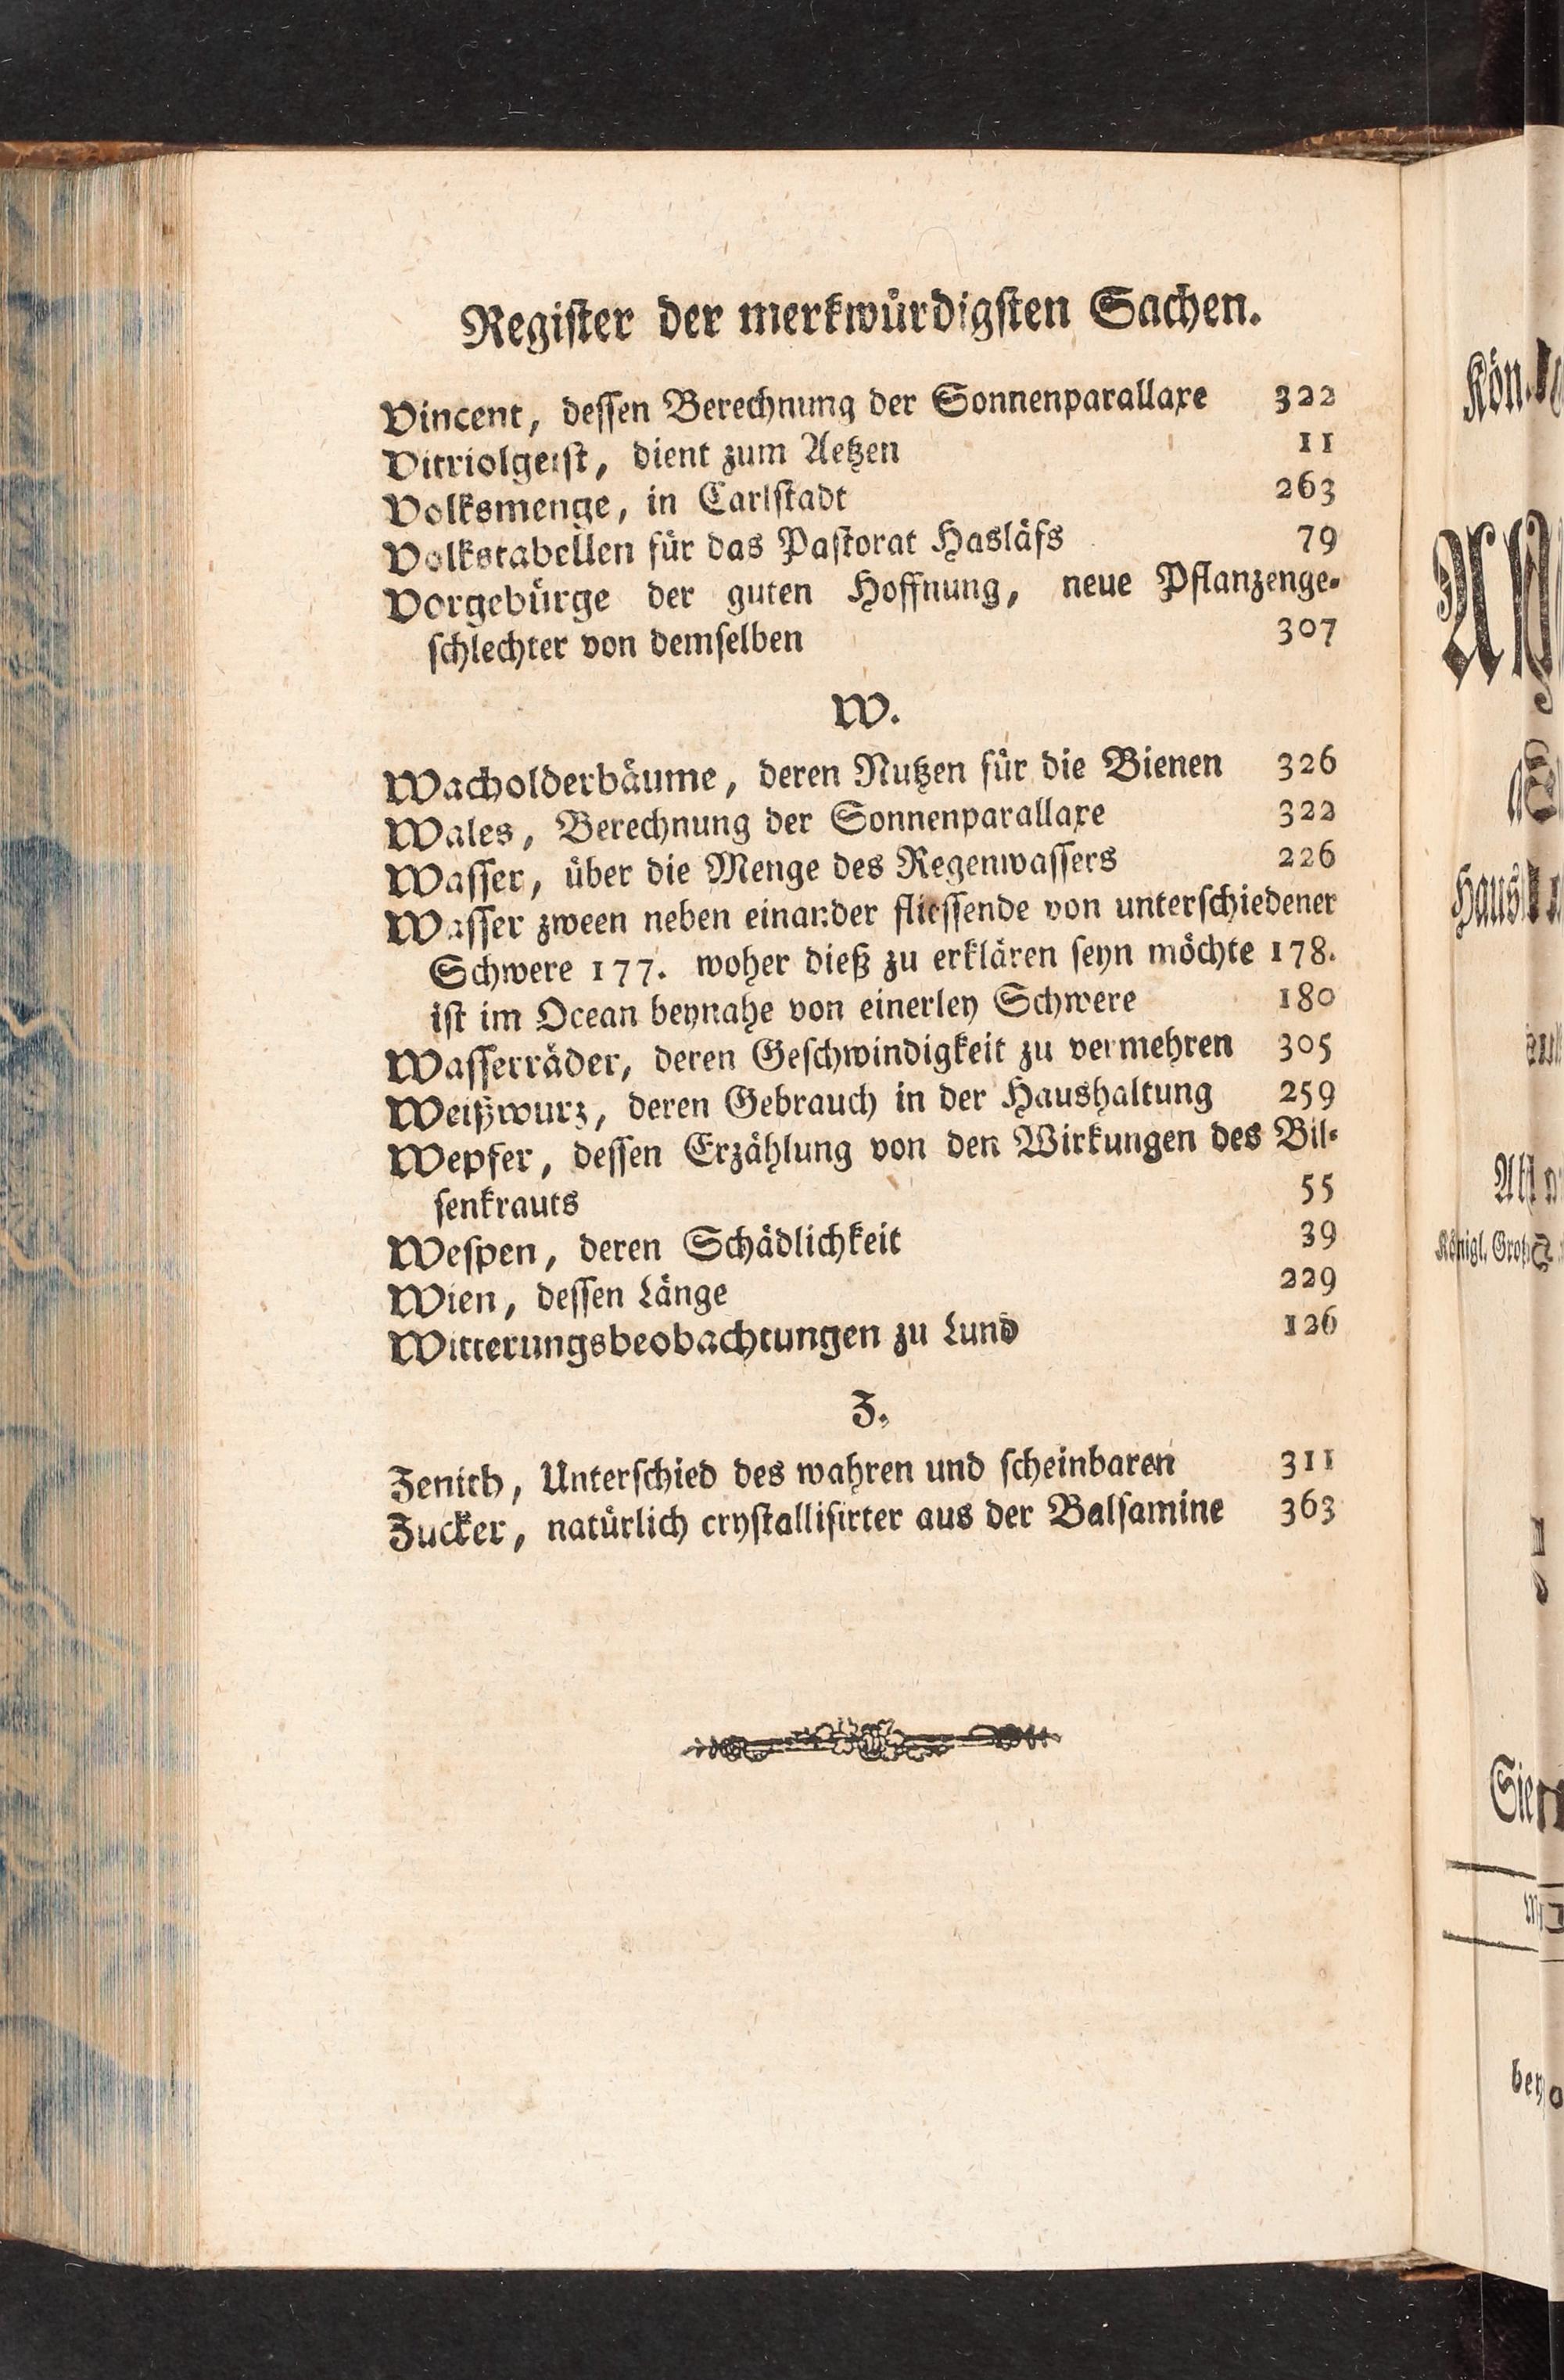 Regiſter der merkwürdigſten Sachen.
Vincent, deſſen Berechnung der Sonnenparallaxe 322
Vitriolgeiſt, dient zum Aetzen 11
Volksmenge, in Carlſtadt 263
Volkstabellen für das Paſtorat Hasläfs 79
Vorgebürge der guten Hoffnung, neue Pflanzenge-
ſchlechter von demſelben 307
W.
Wacholderbäume, deren Nutzen für die Bienen 326
Wales, Berechnung der Sonnenparallaxe 322
Waſſer, über die Menge des Regenwaſſers 226
Waſſer zween neben einander flieſſende von unterſchiedener
Schwere 177. woher dieß zu erklären ſeyn möchte 178.
iſt im Ocean beynahe von einerley Schwere 180
Waſſerräder, deren Geſchwindigkeit zu vermehren 305
Weißwurz, deren Gebrauch in der Haushaltung 259
Wepfer, deſſen Erzählung von den Wirkungen des Bil-
ſenkrauts 55
Weſpen, deren Schädlichkeit 39
Wien, deſſen Länge 229
Witterungsbeobachtungen zu Lund 126
Z.
Zenith, Unterſchied des wahren und ſcheinbaren 311
Zucker, natürlich cryſtalliſirter aus der Balſamine 363